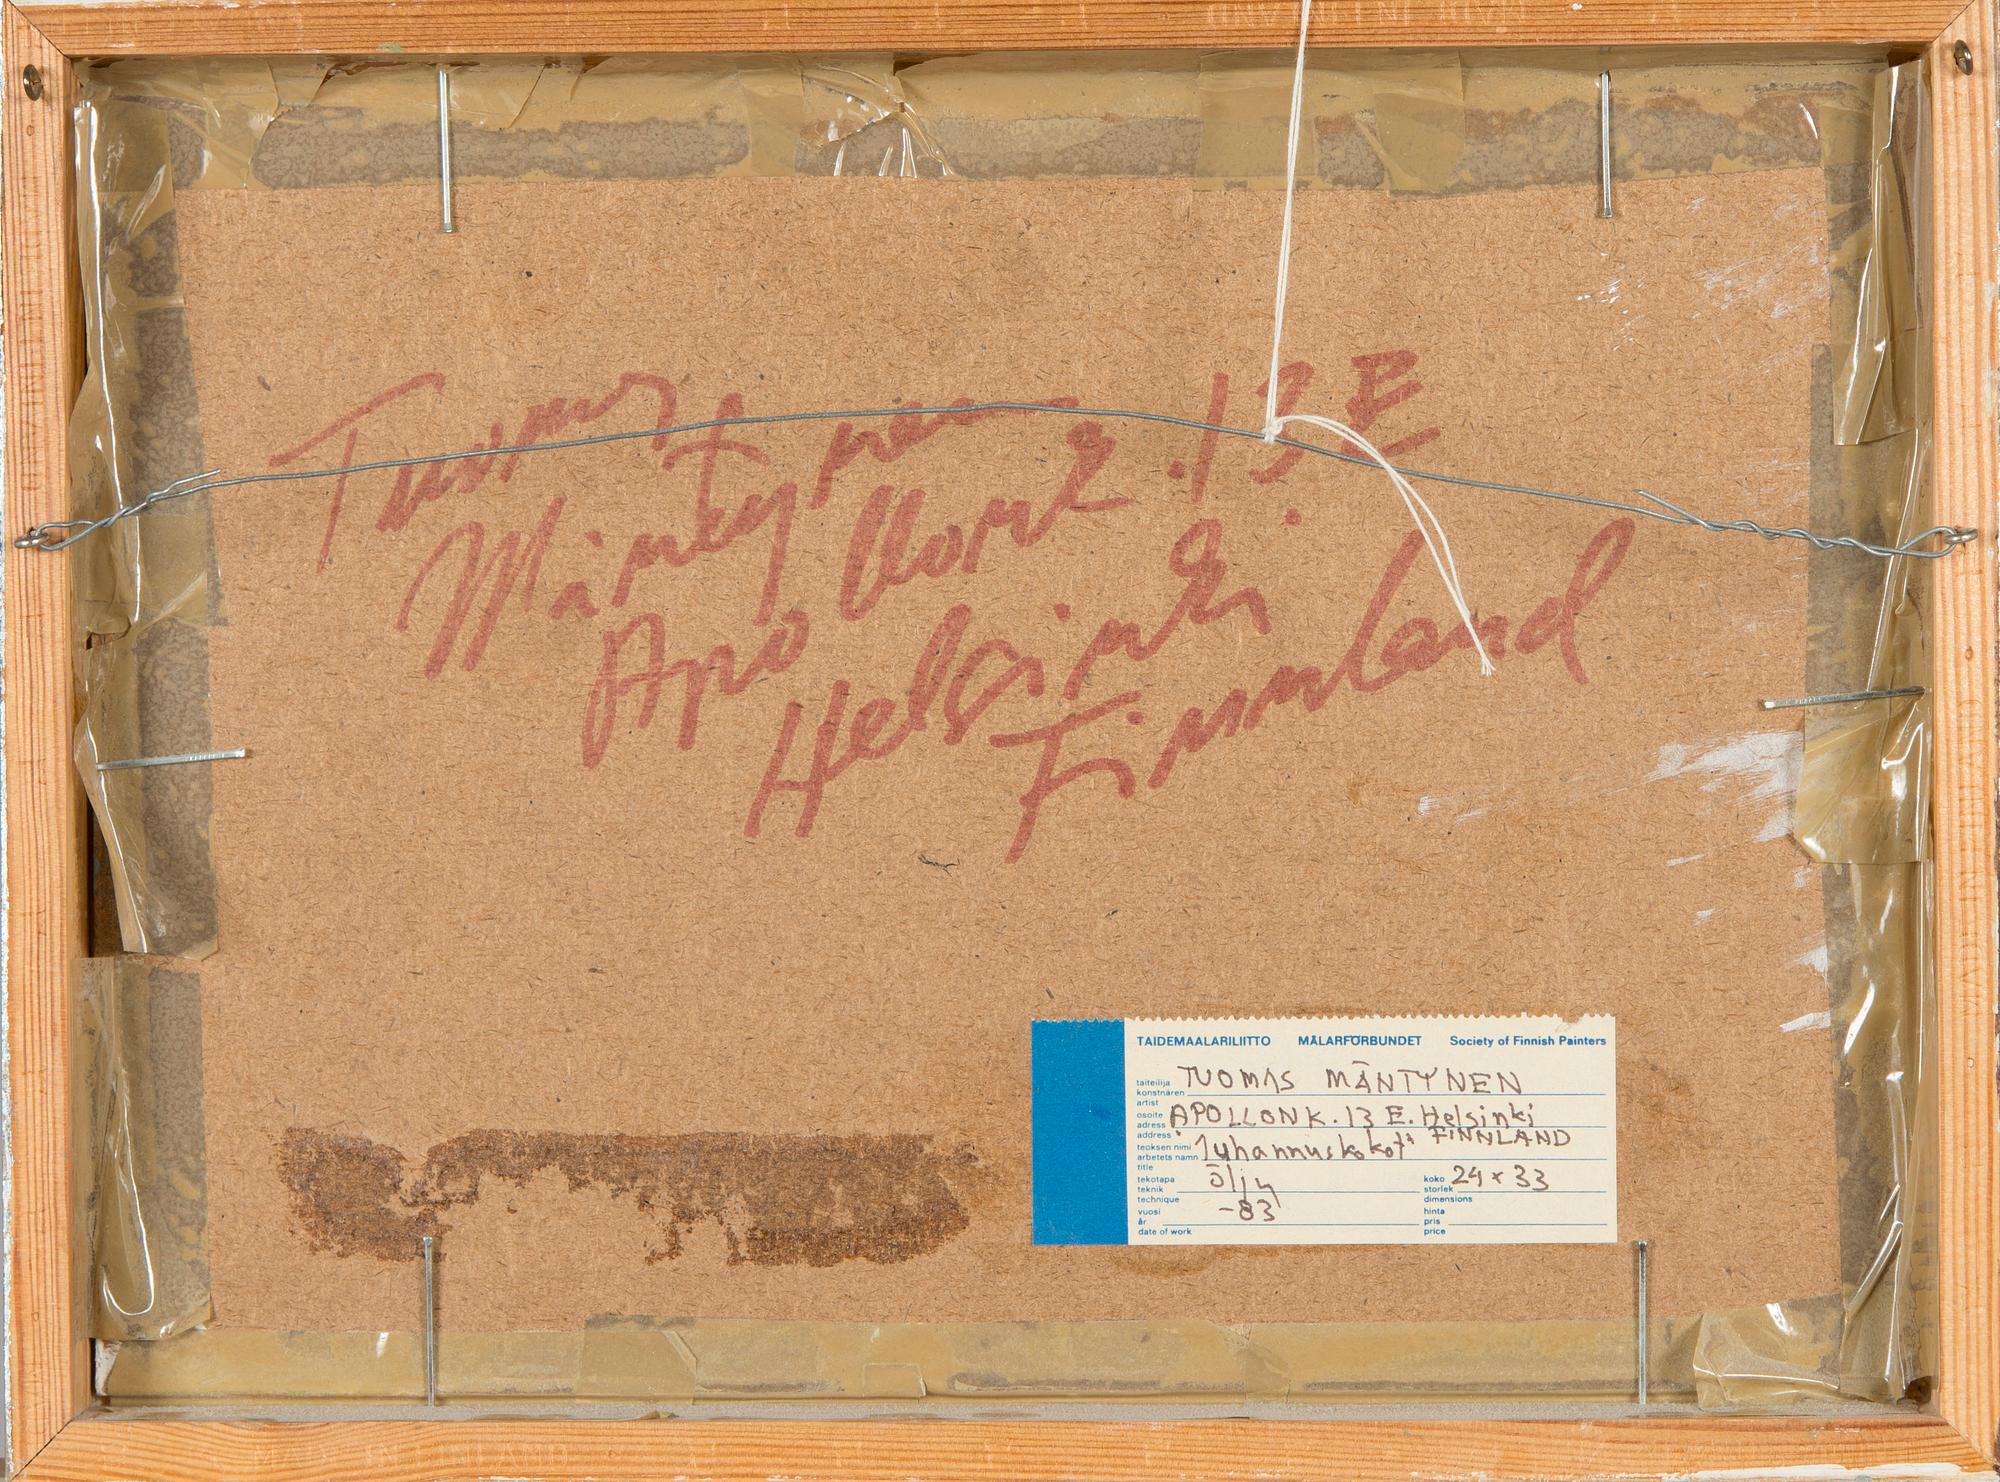 Tuomas
Mäntynen
Apollonk.13 E
Helsinki
Finnland
TAIDEMAALARILIITTO MÅLARFÖRBUNDET Society of Finnish Painters
taiteilija
konstnären TUOMAS MÄNTYNEN
artist
osoite
adress APOLLONK.13 E. Helsinki
address FINNLAND
teoksen nimi
arbetets namn Juhannuskokot
title
tekotapa
teknik öljy
technique
koko
storlek 24 x 33
dimensions
vuosi
år -83
date of work
hinta
pris
price